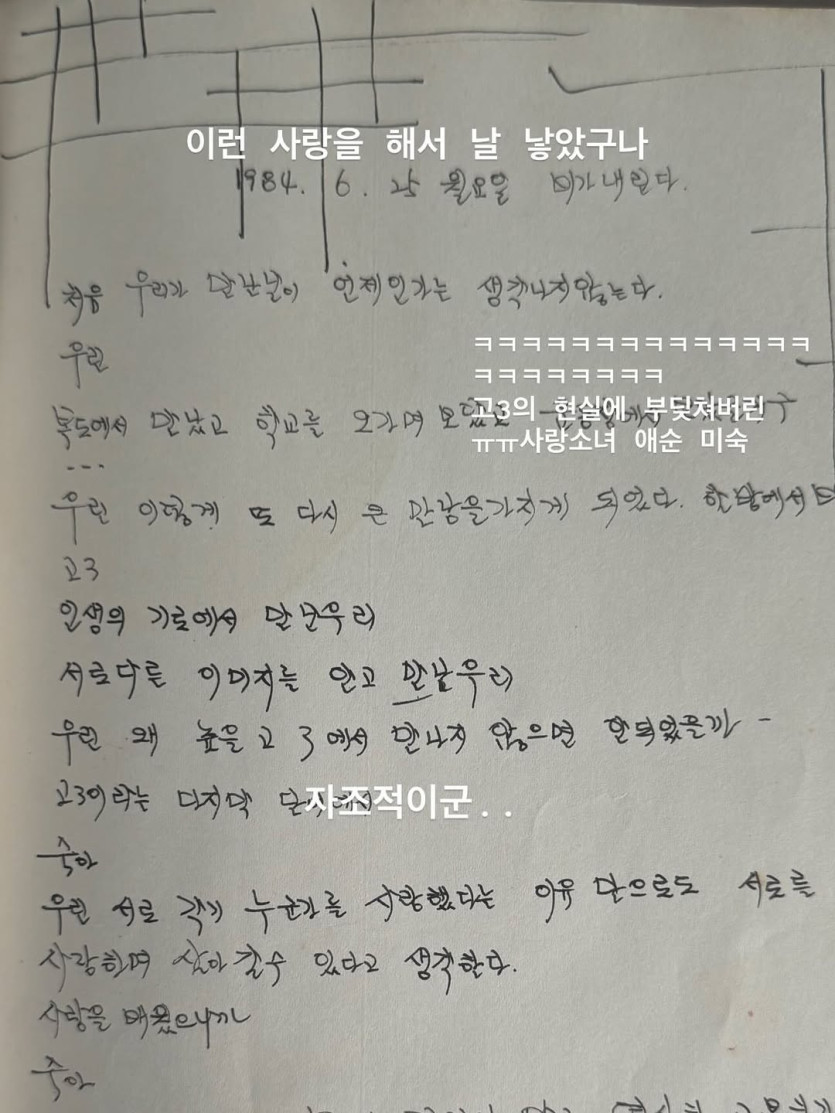 이런 사랑을 해서 날 낳았구나
1984. 6. 25 월요일 비가내린다.
처음 우리가 만난날이 언제인가는 생각나지않는다.
우린
ㅋㅋㅋㅋㅋㅋㅋㅋㅋㅋㅋㅋㅋㅋ
ㅋㅋㅋㅋㅋㅋㅋㅋ
고3의 현실에 부딪쳐버린
ㅠㅠ사랑소녀 애순 미숙
복도에서 만났고 학교를 오가며
...
우린 이렇게 또 다시 큰 만남을가지게 되었다. 한 방에서
고3
인생의 기로에서 만난우리
서로다른 이미지를 안고 만난우리
우린 왜 높을 고 3에서 만나지 않으면 안되었을까 -
고3이라는 마지막
자조적이군..
숙아
우린 서로 각기 누군가를 사랑했다는 이유 만으로도 서로를
사랑하며 살아갈수 있다고 생각한다.
사랑을 배웠으니까
숙아